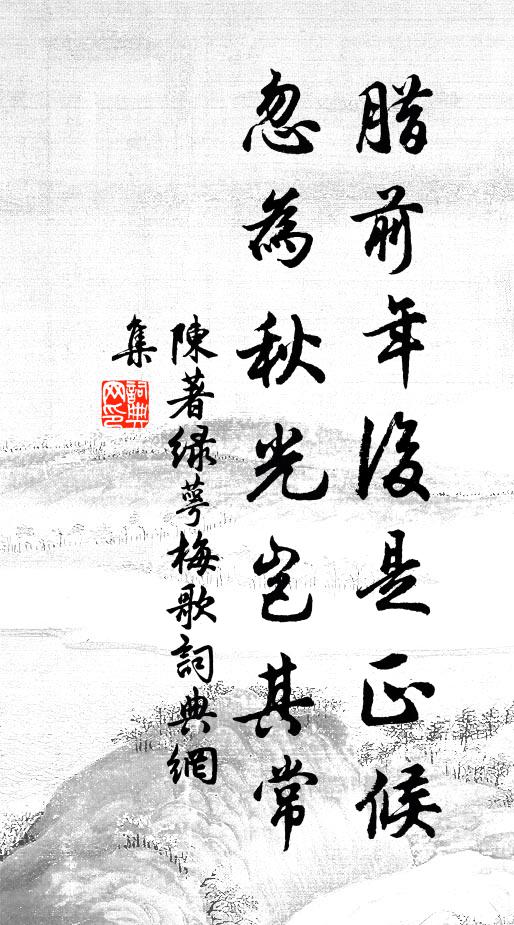 腊前年後是正候
忽為秋光豈其常
陳著绿萼梅歌詞典網
集
詞典網印